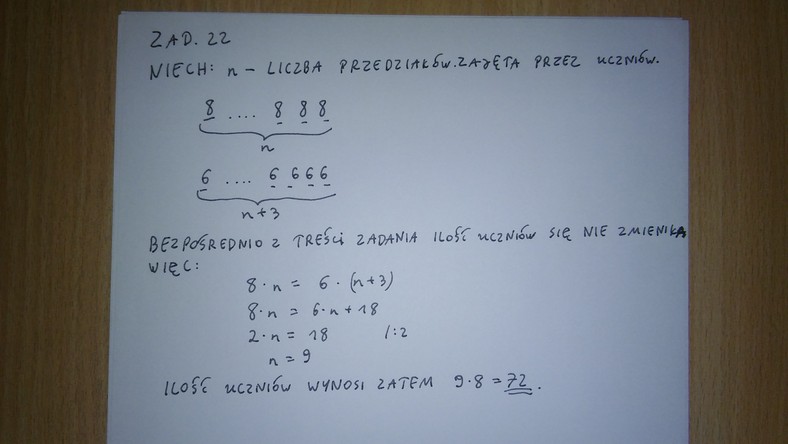 ZAD. 22
NIECH: n - LICZBA PRZEDZIAKÓW.ZAJĘTA PRZEZ UCZNIÓW.
8 .... 8 8 8
n
6 .... 6 6 6 6
n+3
BEZPOŚREDNIO Z TREŚCI ZADANIA ILOŚĆ UCZNIÓW SIĘ NIE ZMIENIŁA
WIĘC:
8·n = 6·(n+3)
8·n = 6·n+18
2·n = 18 /:2
n = 9
ILOŚĆ UCZNIÓW WYNOSI ZATEM 9·8 = 72.